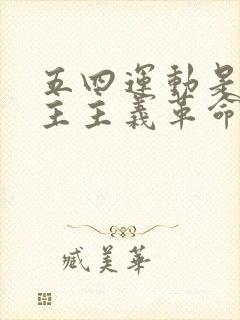 五四運動是
主主義革命
臧美華